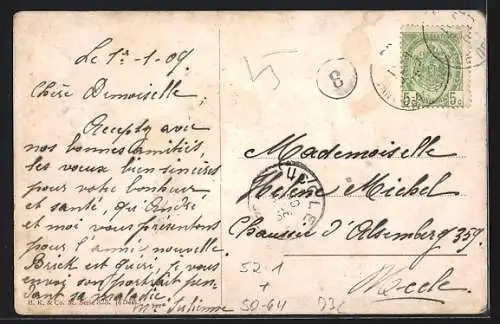 Le 1r - 1 - 09
Chère Demoiselle,
Acceptez avec
nos bonnes amitiés,
les voeux bien sincères
pour votre bonheur
et santé, qu'André
et moi vous présentons
pour l'année nouvelle
Brick est guéri, je vous
envoy son portrait pen-
dant sa maladie
Mme Julienne
B. K. & Co. M. Serie
Mademoiselle
Helene Michel
Chaussée d'Alsemberg 359.
Uccle.
8
5c 5c
UCCLE
52.1
+
50-64 D3c